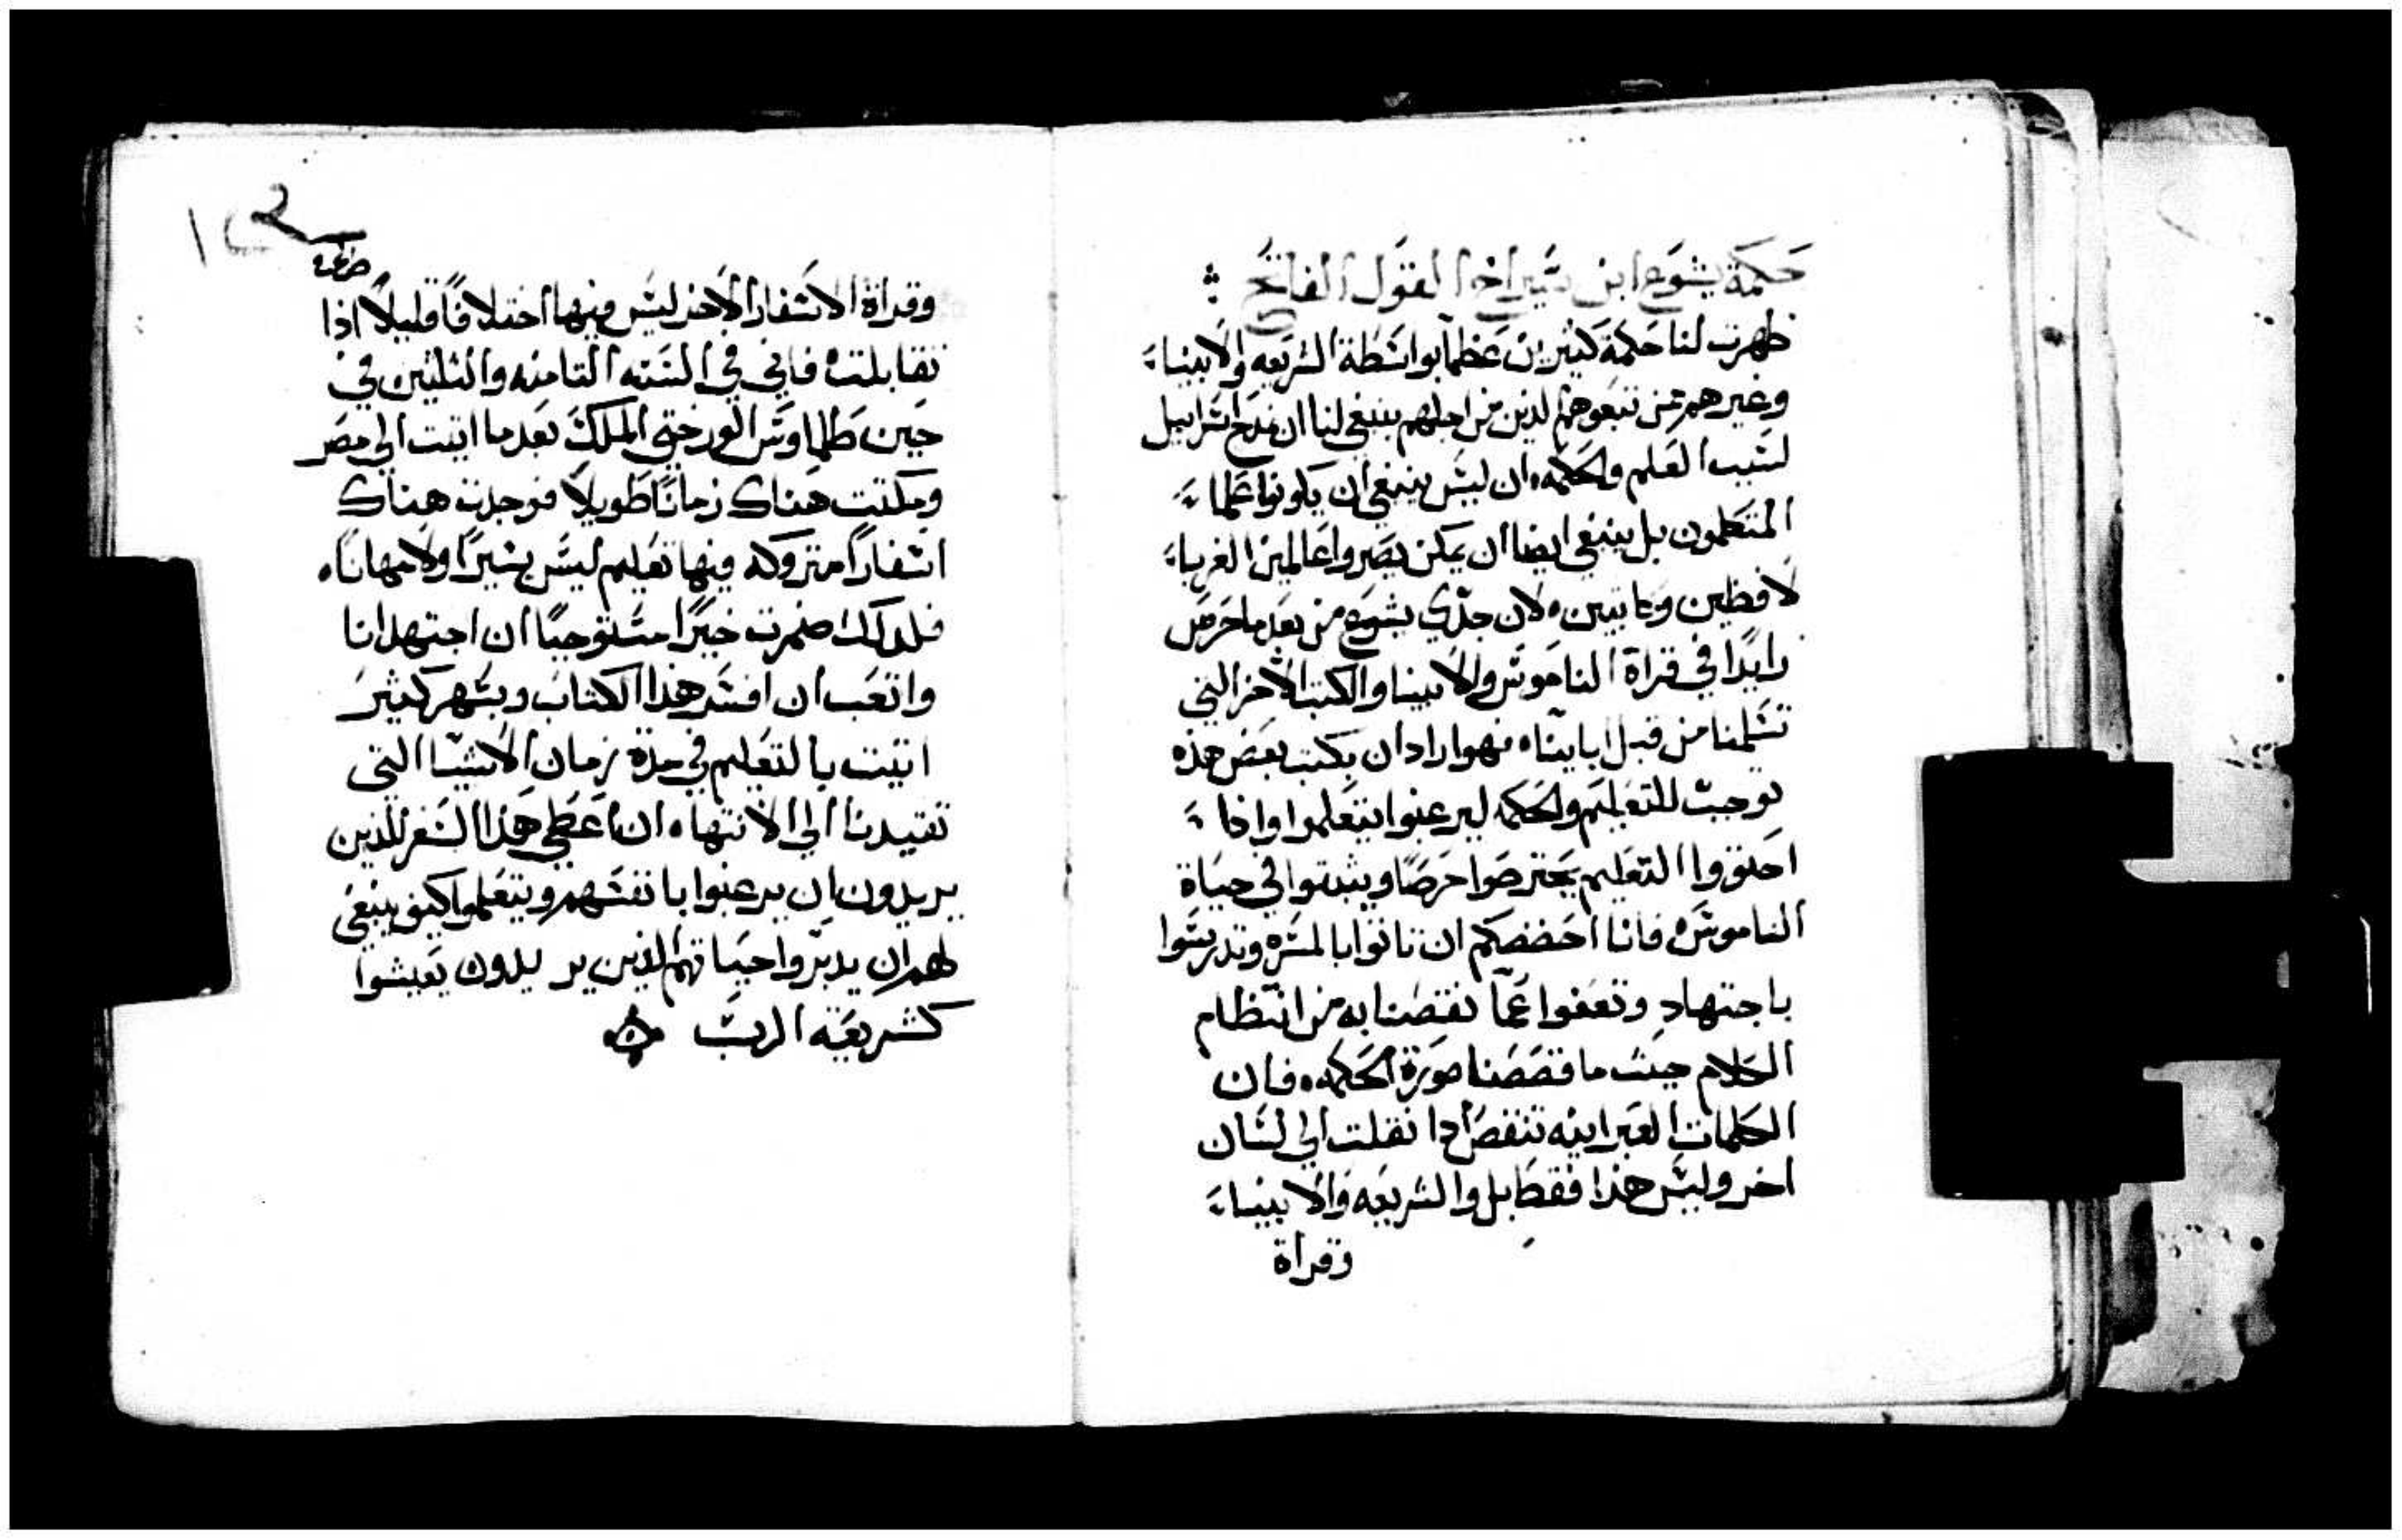 حكمة يشوع ابن شيراخ القول الفاتح
ظهرت لنا حكمة كثيرين عظما بواسطة الشريعه والانبياء
وغيرهم ممن تبعوهم الذين من اجلهم ينبغي لنا ان نمدح اسراييل
لسبب العلم والحكمه ان ليس ينبغي ان يكونوا علماء
المتكلمون بل ينبغي ايضا ان يمكن يصروا عالمين الغرباء
لافظين وكاتبين لان جدي يشوع من بعد ما حرص
زايدا في قراة الناموس والانبيا والكتب الاخر التي
تسلمنا من قبل ابايناه فهو اراد ان يكتب بعض هذه
توجبت للتعليم والحكمه ليرغبوا يتعلموا واذا
احتووا التعليم يحترصوا حرصا ويثبتوا في حياة
الناموس فانا احضضكم ان تاتوا بالمسره وتدرسوا
باجتهاد وتعفوا عما نقصنا به من انتظام
الكلام حيث ما قصصنا صورة الحكمه فان
الكلمات العبرانيه تنقص اذا نقلت الي لسان
اخر وليس هذا فقط بل والشريعه والانبياء
وقراة
وقراة الاسفار الاخر ليس فيها اختلافا قليلا اذا
تقابلت فاني في السنه الثامنه والثلثين في
حين طلماوس الورختي الملك بعد ما اتيت الي مصر
ومكثت هناك زمانا طويلا فوجدت هناك
اسفارا متروكه فيها تعليم ليس يسيرا ولا مهانا
فلذلك ضمرت خيرا مستوجبا ان اجتهد انا
واتعب ان افسر هذا الكتاب وبسهر كثير
اتيت بالتعليم في مدة زمان الاشيا التي
تقتيدنا الي الانتهاء ان اعطي هذا السفر للذين
يريدون ان يرغبوا بانفسهم ويتعلموا كيف ينبغي
لهم ان يدبروا حياتهم الذين يريدون يعيشوا
كشريعة الرب